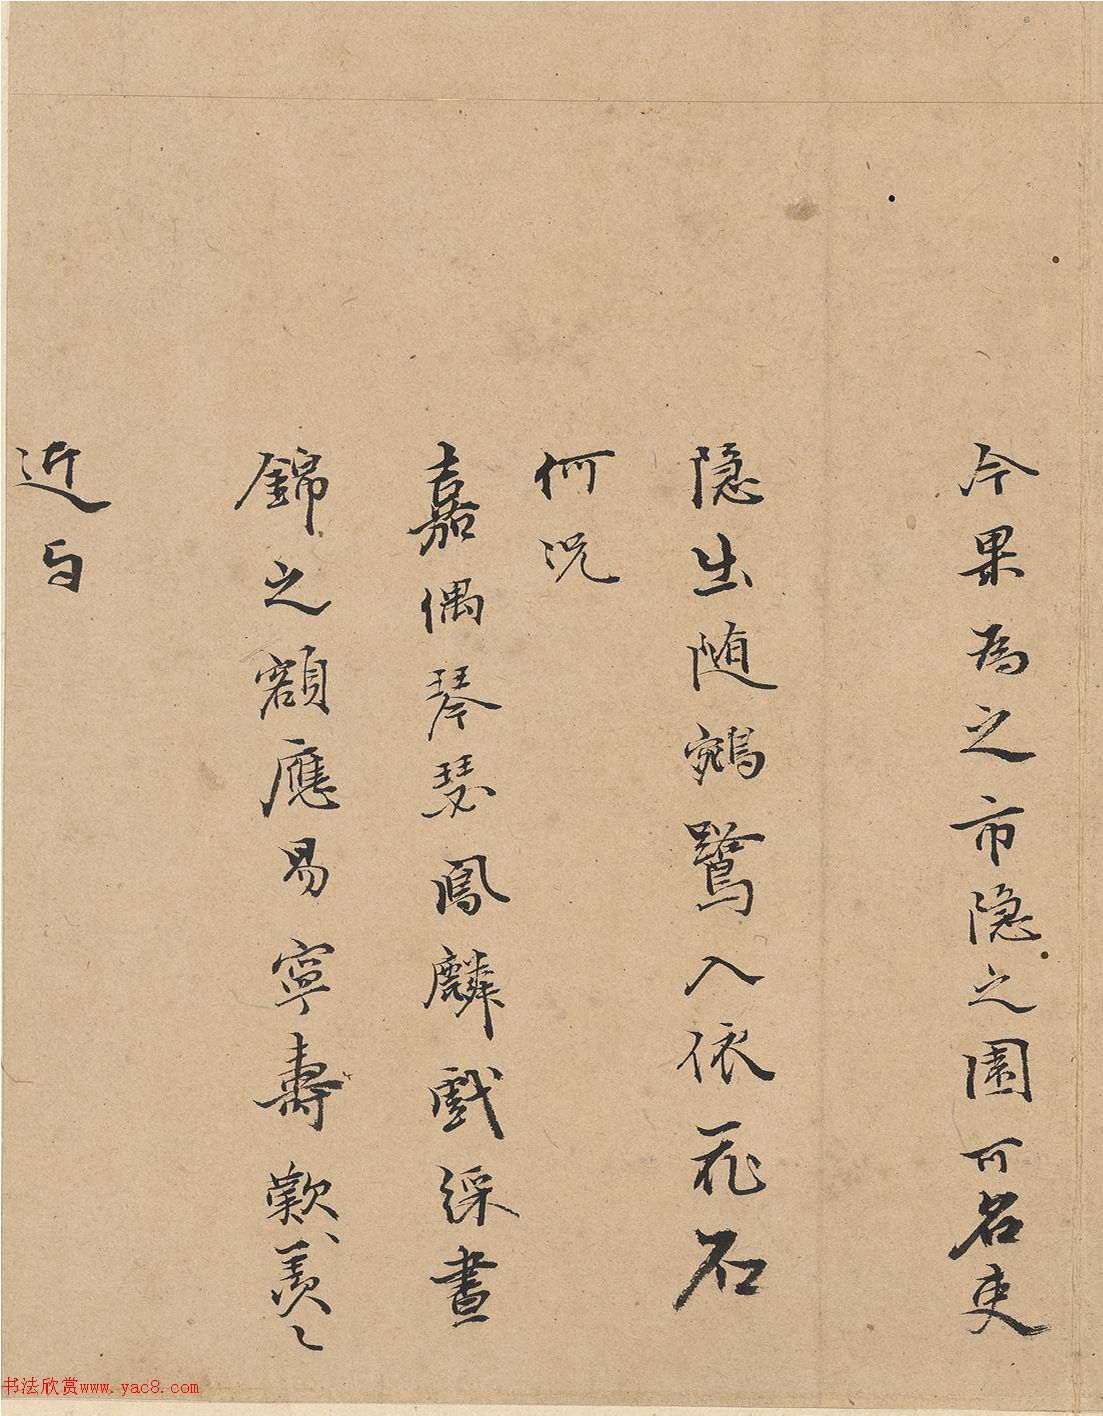 今果為之市隐之園可名吏
隐出随鵷鷺入依花石
何况
嘉偶琴瑟鳳麟戯綵晝
錦之額應易寧壽歎羡〻
近与
书法欣赏www.yac8.com